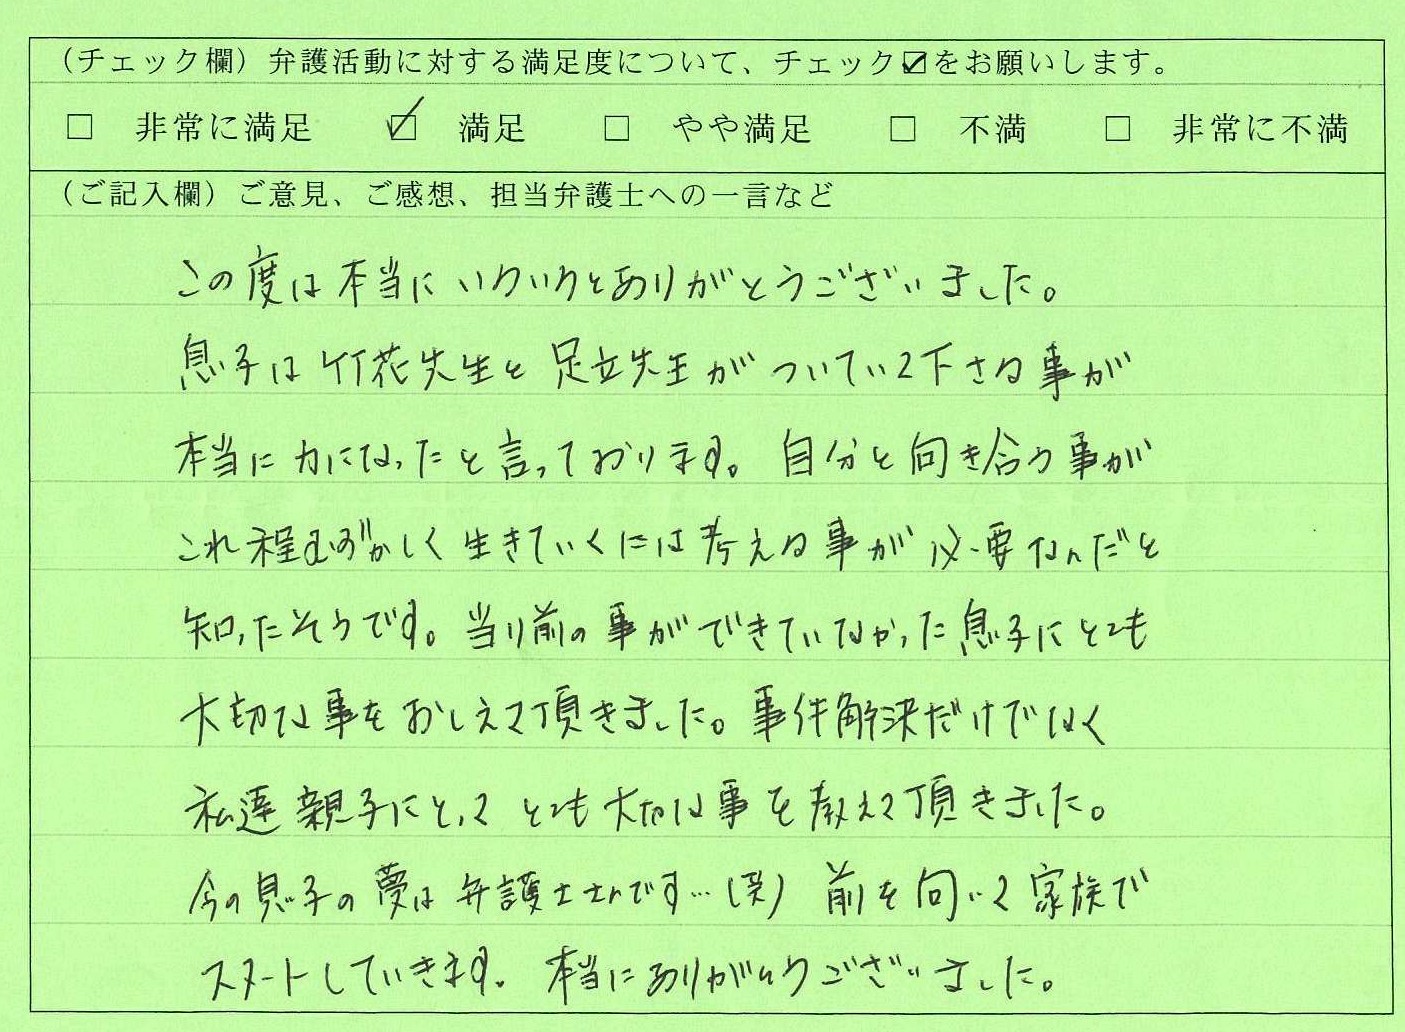 （チェック欄）弁護活動に対する満足度について、チェック☑をお願いします。
□ 非常に満足 ☑ 満足 □ やや満足 □ 不満 □ 非常に不満
（ご記入欄）ご意見、ご感想、担当弁護士への一言など
この度は本当にいろいろとありがとうございました。
息子は竹花先生と足立先生がついていて下さる事が
本当に力になったと言っております。自分と向き合う事が
これ程むずかしく生きていくには考える事が必要なんだと
知ったそうです。当り前の事ができていなかった息子にとても
大切な事をおしえて頂きました。事件解決だけでなく
私達親子にとって とても大切な事を教えて頂きました。
今の息子の夢は弁護士さんです…（笑） 前を向いて家族で
スタートしていきます。本当にありがとうございました。